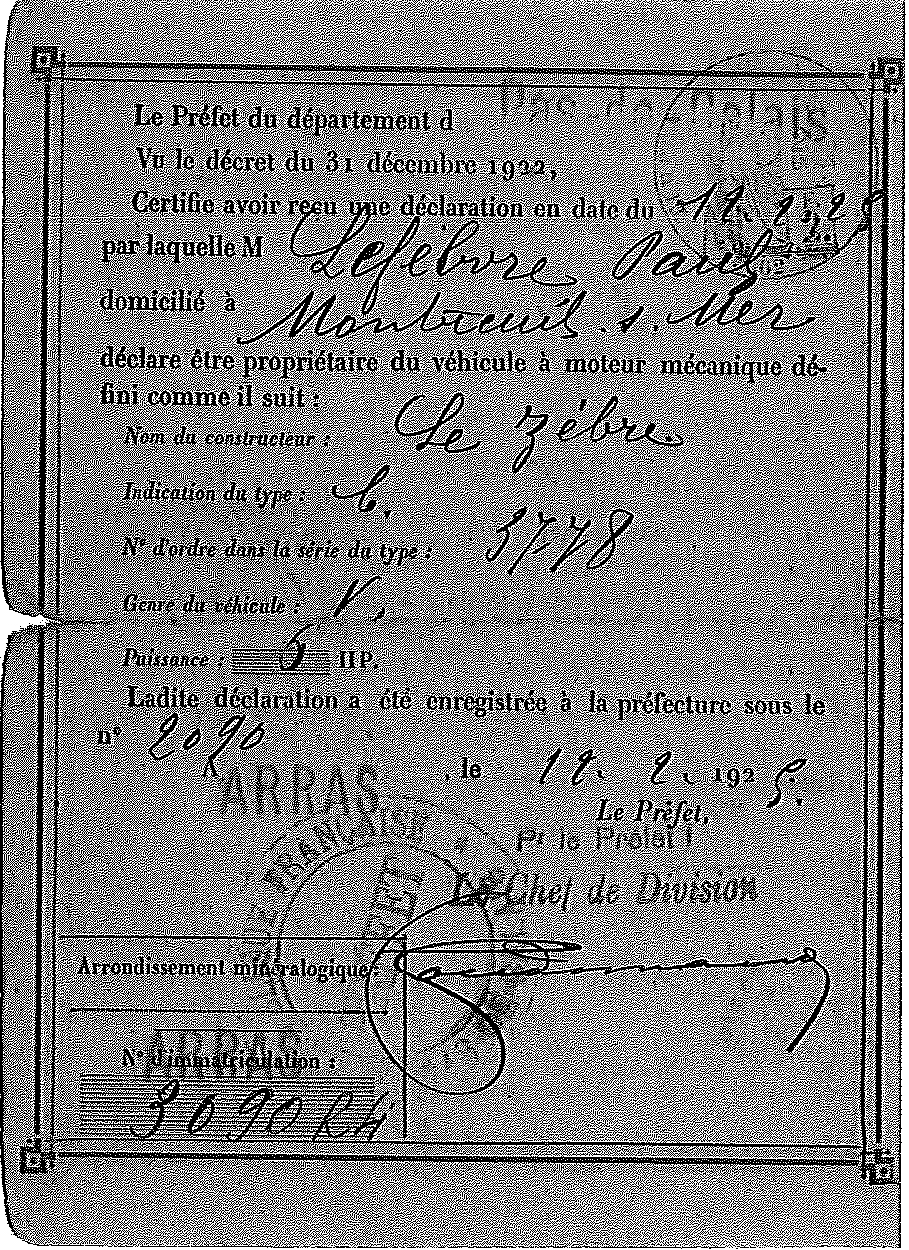 Le Préfet du département d Pas-de-Calais
Vu le décret du 31 décembre 1922,
Certifie avoir reçu une déclaration en date du 12. 2. 25
par laquelle M Lefebvre Paul
domicilié à Montreuil s. Mer
déclare être propriétaire du véhicule à moteur mécanique dé-
fini comme il suit :
Nom du constructeur : Le Zèbre
Indication du type : C.
N° d'ordre dans la série du type : 3778
Genre du véhicule : V.
Puissance : 5 HP.
Ladite déclaration a été enregistrée à la préfecture sous le
n° 2090
ARRAS, le 12. 2. 1925.
Le Préfet,
Pr le Préfet
Le Chef de Division
Arrondissement minéralogique :
ARRAS
N° d'immatriculation :
3090 R4